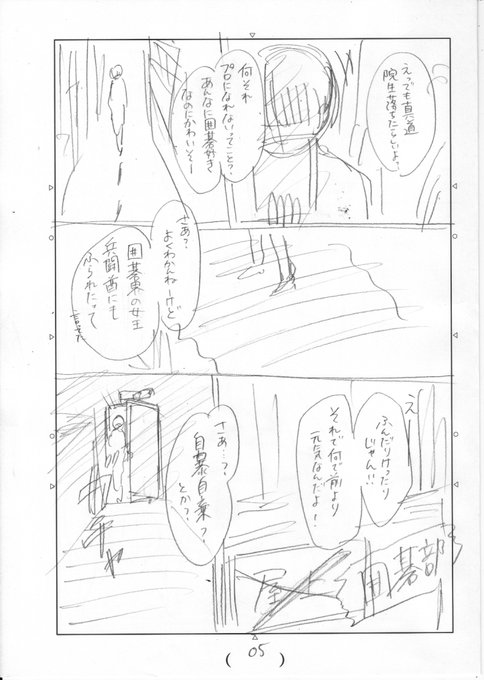 えっでも真道
院生落ちたらしいよ?
何それ
プロになれないってこと?
あんなに囲碁好き
なのにかわいそー
さあ?
よくわかんねーけど
囲碁東の女王
兵闘酉にも
ふられたって
え
ふんだりけったり
じゃん!!
それで何で前より
元気なんだよ!
さあ…?
自暴自棄?
とか?
ガチャ
屋上
囲碁部
(05)